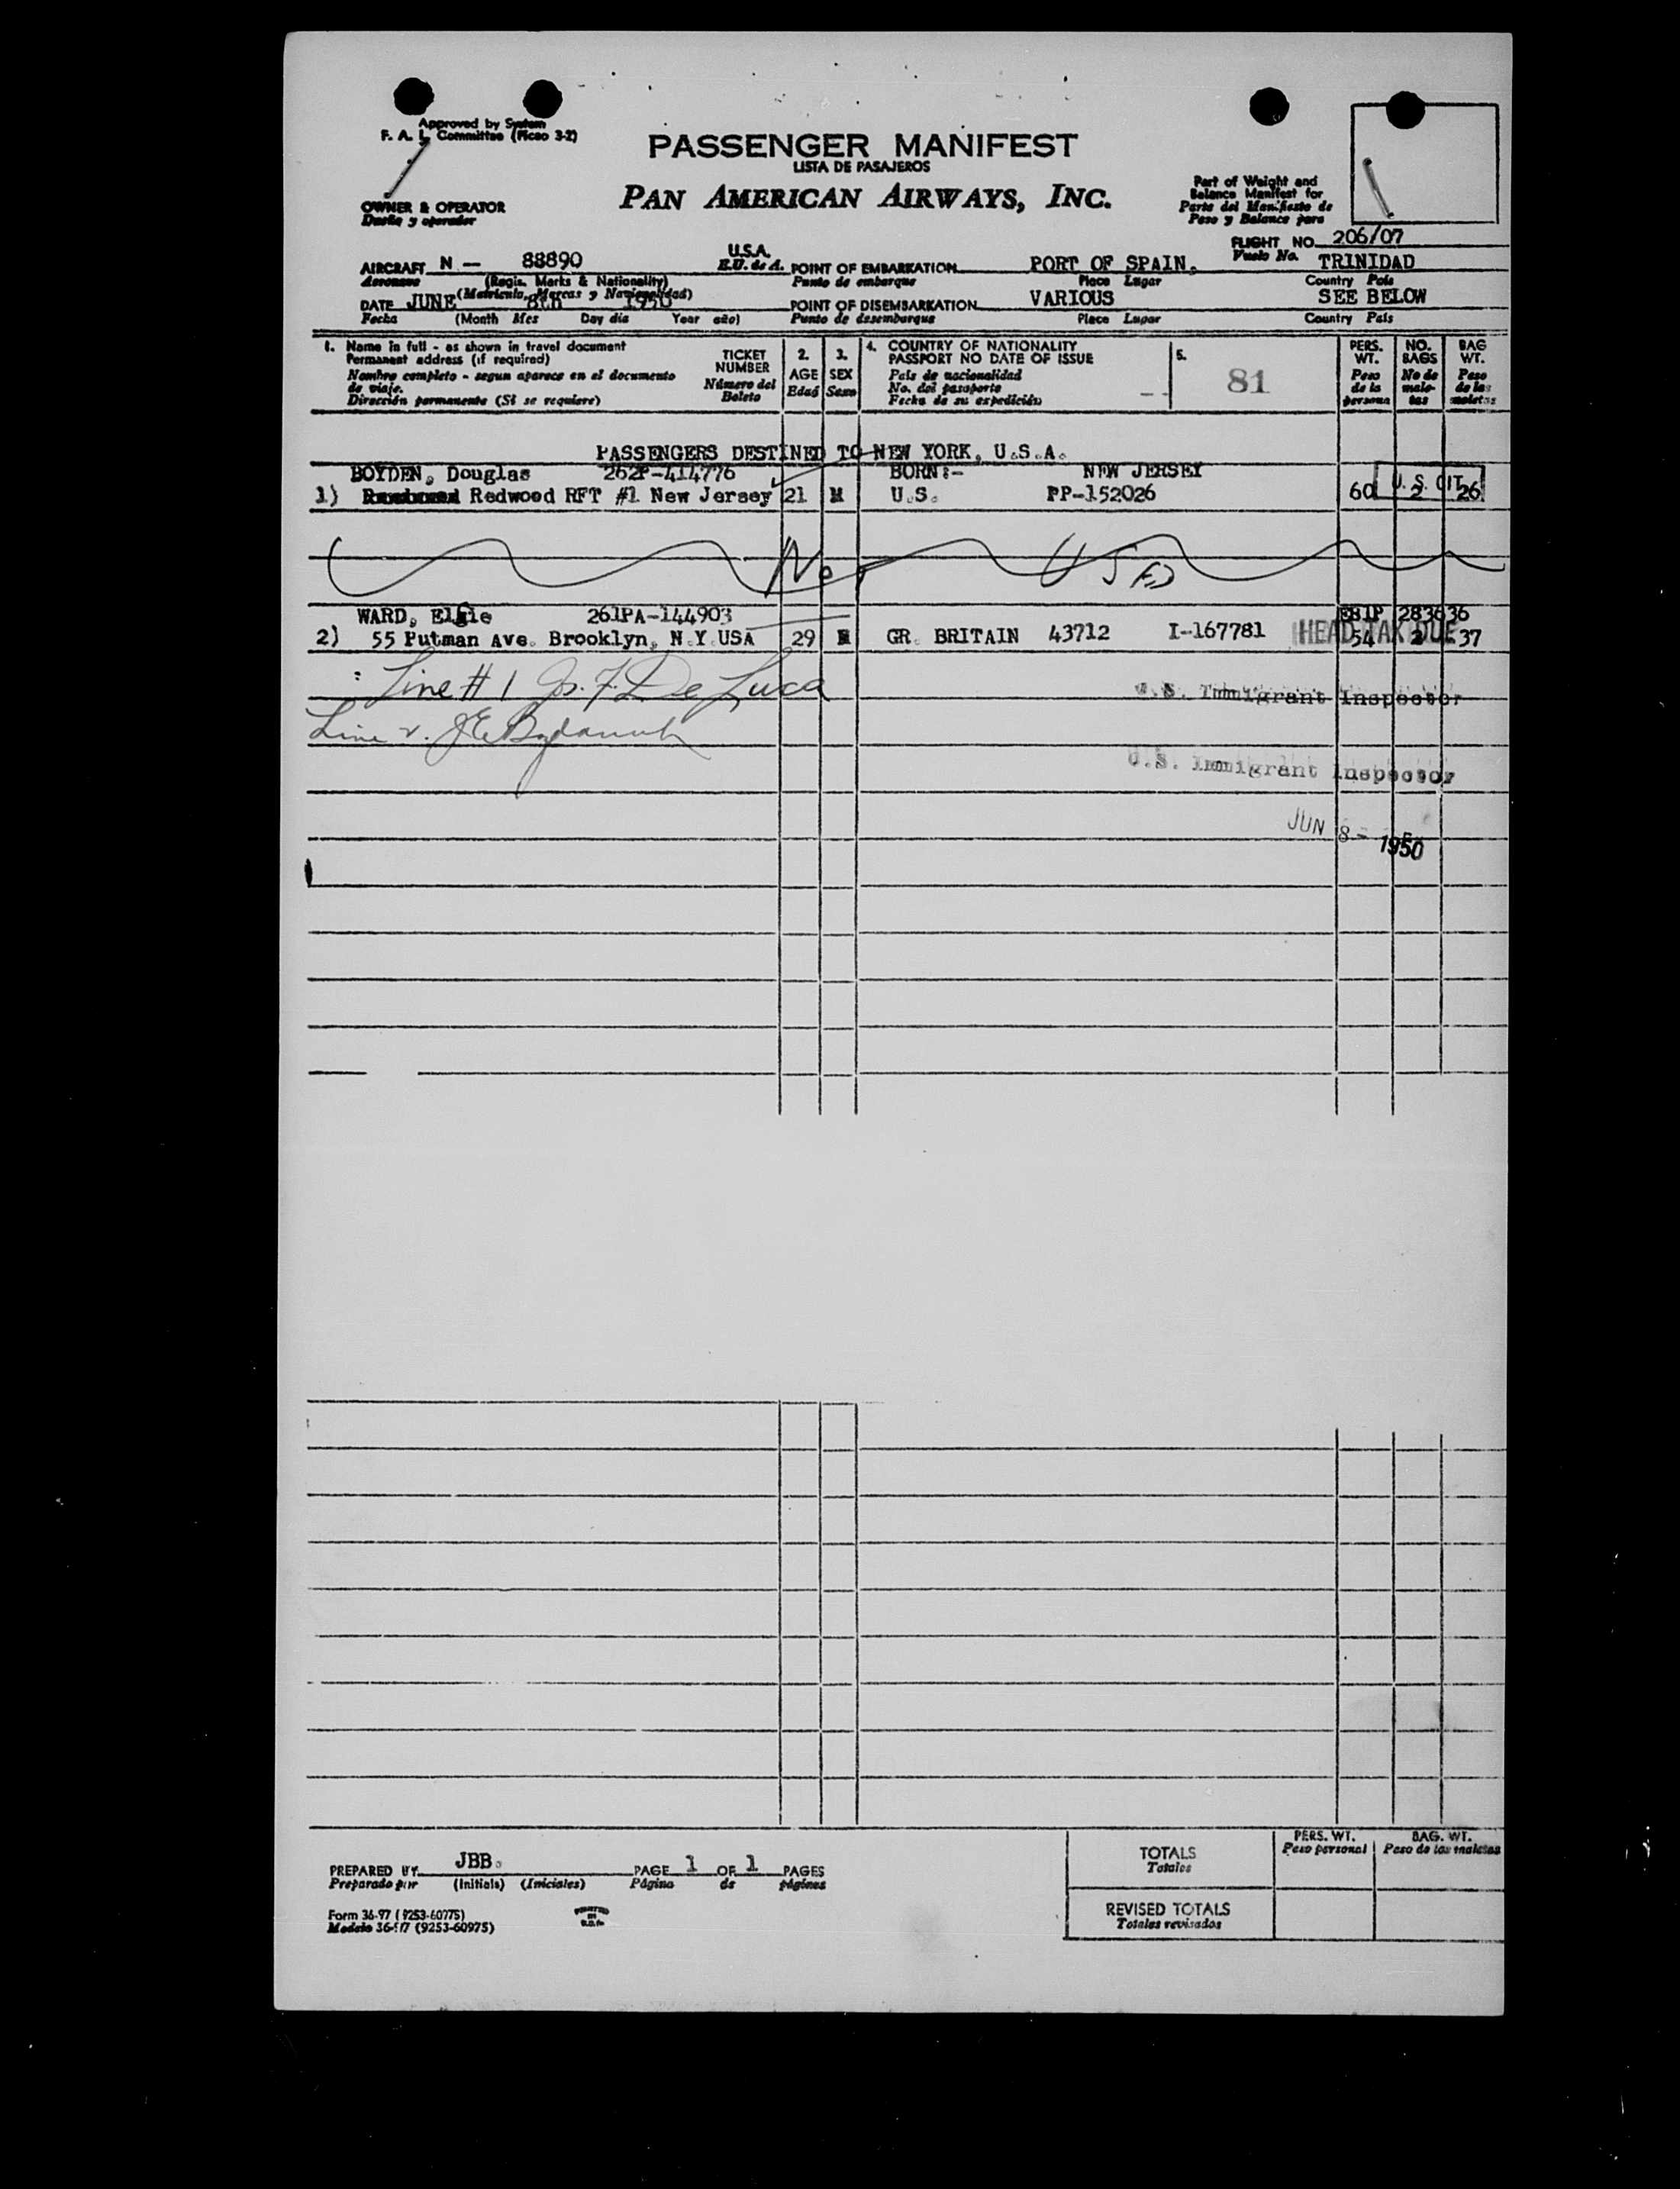 Approved by System
F. A. L. Committee (Ficao 3-2)
PASSENGER MANIFEST
LISTA DE PASAJEROS
PAN AMERICAN AIRWAYS, INC.
OWNER & OPERATOR
Dueño y operador
Part of Weight and
Balance Manifest for
Parte del Manifiesto de
Peso y Balance para
FLIGHT NO. 206/07
Vuelo No.
AIRCRAFT N - 88890 U.S.A.
Aeronave (Regis. Marks & Nationality) E.U. de A.
(Matricula, Marcas y Nacionalidad)
POINT OF EMBARKATION PORT OF SPAIN, TRINIDAD
Punto de embarque Place Lugar Country País
DATE JUNE 8th 1950
Fecha (Month Mes Day día Year año)
POINT OF DISEMBARKATION VARIOUS SEE BELOW
Punto de desembarque Place Lugar Country País
1. Name in full - as shown in travel document
Permanent address (if required)
Nombre completo - segun aparece en el documento
de viaje.
Dirección permanente (Si se requiere)
TICKET
NUMBER
Número del
Boleto
2.
AGE
Edad
3.
SEX
Sexo
4. COUNTRY OF NATIONALITY
PASSPORT NO DATE OF ISSUE
País de nacionalidad
No. del pasaporte
Fecha de su expedición
5.
81
PERS.
WT.
Peso
de la
persona
NO.
BAGS
No de
male-
tas
BAG
WT.
Peso
de las
maletas
PASSENGERS DESTINED TO NEW YORK, U.S.A.
BOYDEN, Douglas 262P-414776 BORN:- NEW JERSEY
1) Redwood RFT #1 New Jersey 21 M U.S. PP-152026 60 2 26
U. S. CIT
Not USED
WARD, Elsie 261PA-144903 EBIP 283636
2) 55 Putman Ave. Brooklyn, N.Y.USA 29 GR. BRITAIN 43712 I-167781 54 2 37
HEAD TAX DUE
Line # 1 Jos. F. De Luca U.S. Immigrant Inspector
Line 2. J E
U.S. Immigrant Inspector
JUN 8 - 1950
PREPARED BY JBB. PAGE 1 OF 1 PAGES
Preparado por (Initials) (Iniciales) Página de páginas
Form 36-97 (9253-60975)
Modelo 36-97 (9253-60975)
PRINTED
IN
U.S.A.
TOTALS
Totales
PERS. WT.
Peso personal
BAG. WT.
Peso de las maletas
REVISED TOTALS
Totales revisados